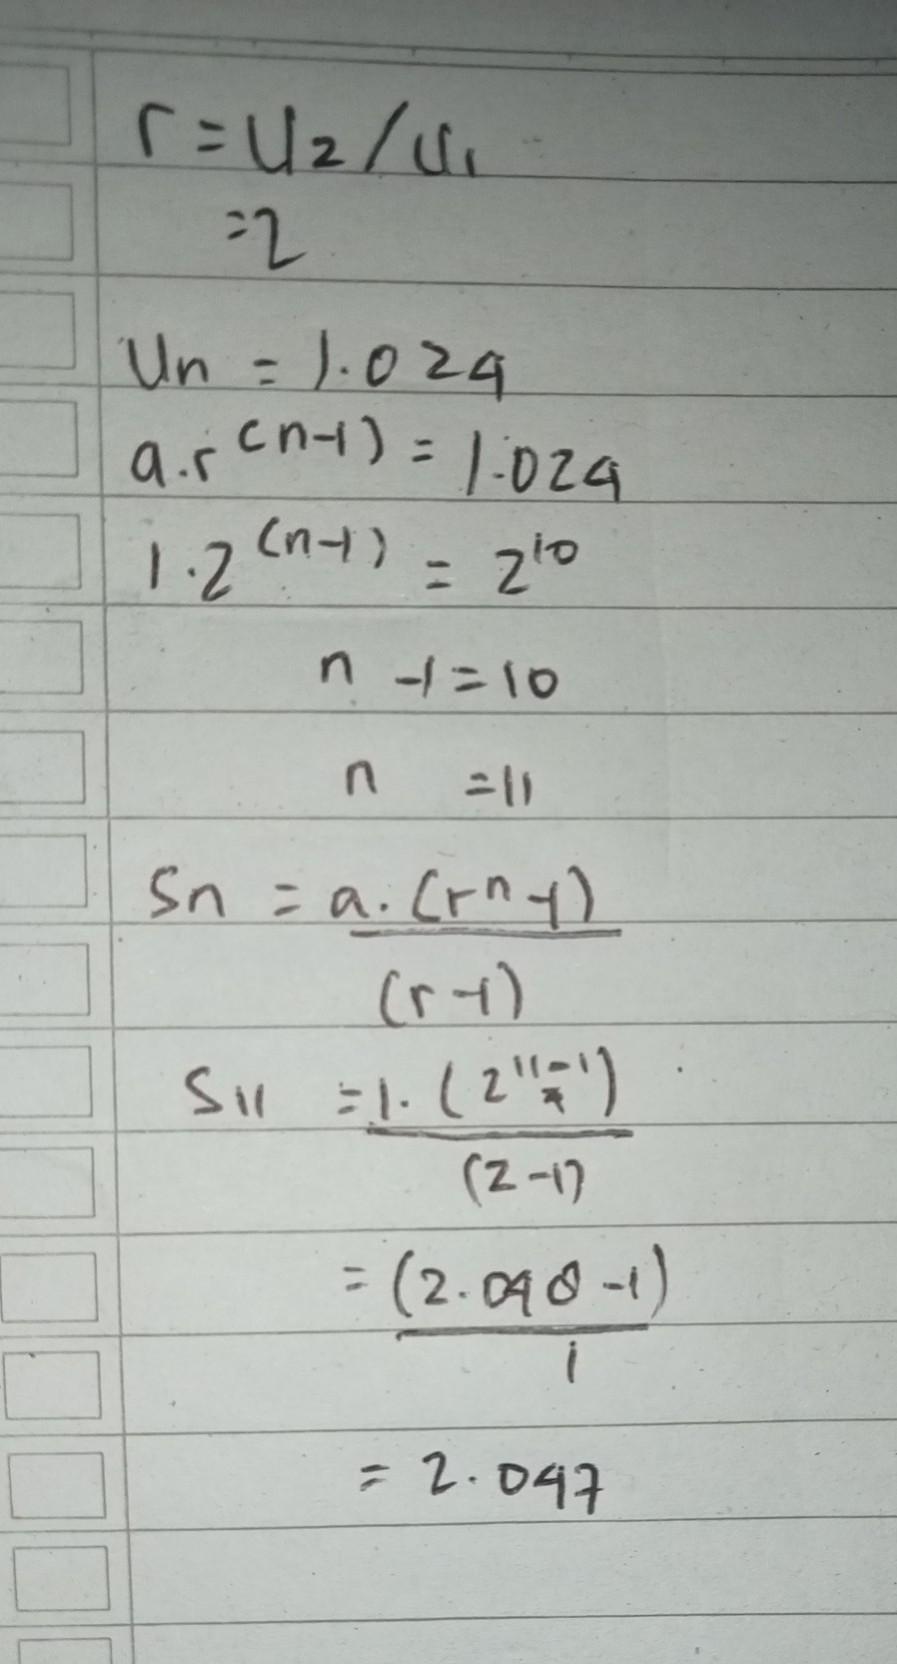 r = U2/U1
= 2
Un = 1.024
a.r^(n-1) = 1.024
1.2^(n-1) = 2^10
n - 1 = 10
n = 11
Sn = a.(r^n-1)
(r-1)
S11 = 1.(2^11-1)
(2-1)
= (2.048-1)
1
= 2.047